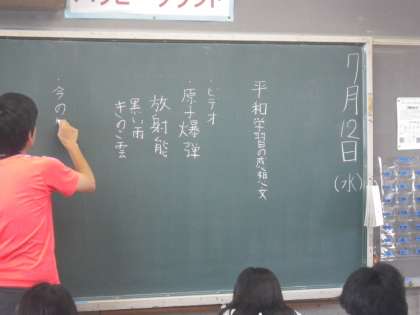 7月12日(水)
平和学習の感想文
・ビデオ
・原子爆弾
放射能
黒い雨
きのこ雲
・今の